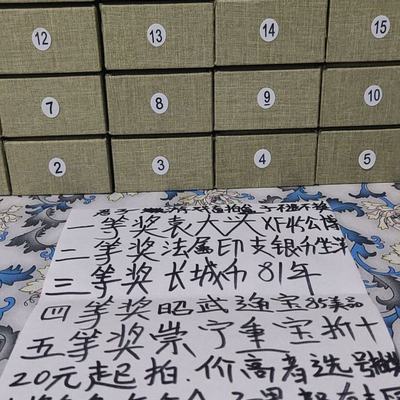 12 13 14 15
7 8 9 10
2 3 4 5
一等奖袁大头XF45公博
二等奖法属印支银币坐洋
三等奖长城币81年
四等奖昭武通宝85美品
五等奖崇宁重宝折十
20元起拍.价高者选号